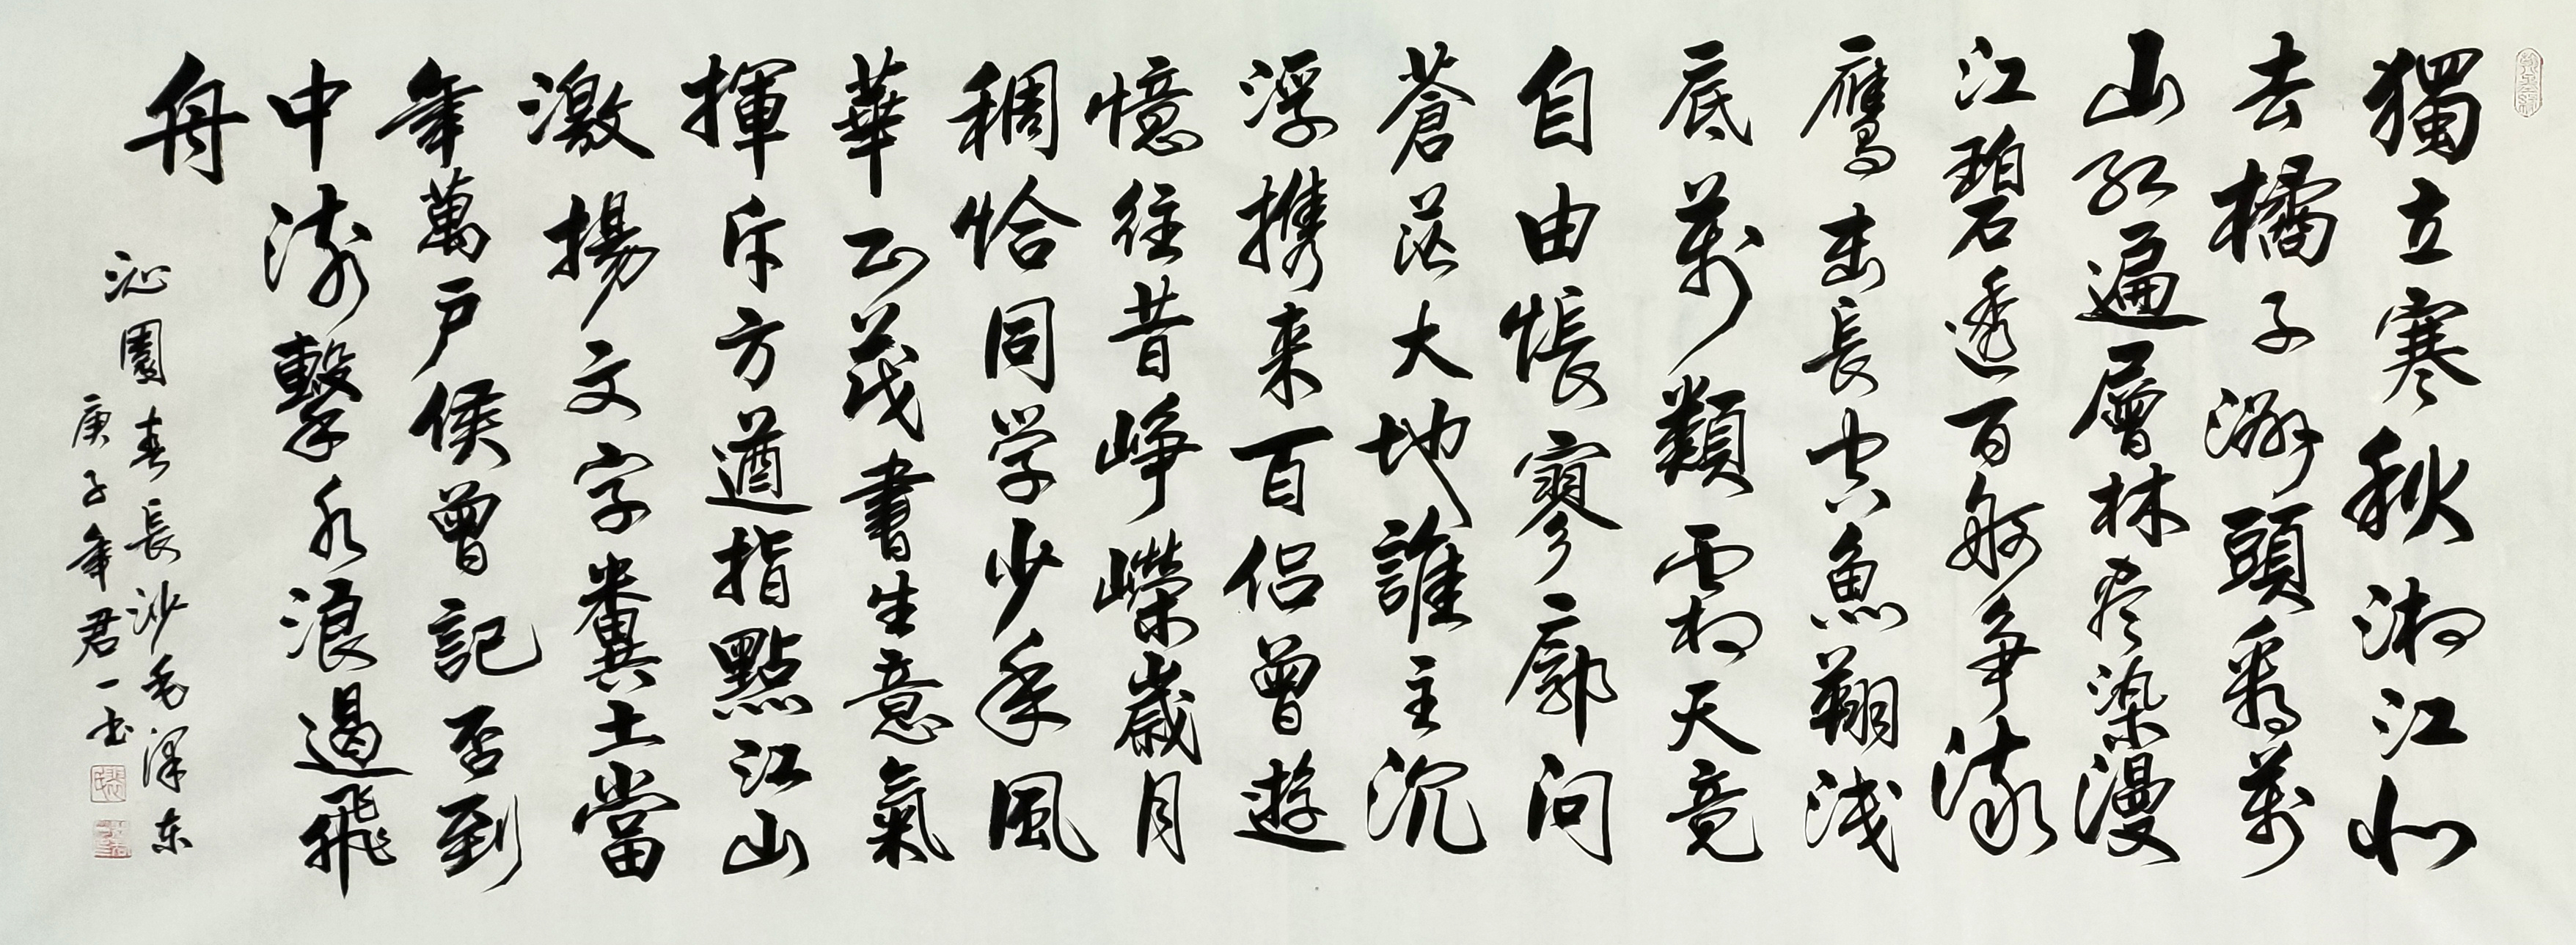 獨立寒秋湘江北
去橘子洲頭看萬
山红遍層林尽染漫
江碧透百舸争流
鹰击長空魚翔浅
底萬類霜天竞
自由悵寥廓问
蒼茫大地誰主沉
浮携来百侣曾遊
憶往昔峥嶸歲月
稠恰同学少年風
華正茂書生意氣
揮斥方遒指點江山
激揚文字糞土當
年萬户侯曾記否到
中流擊水浪遏飛
舟
沁園春長沙毛泽东
庚子年君一书